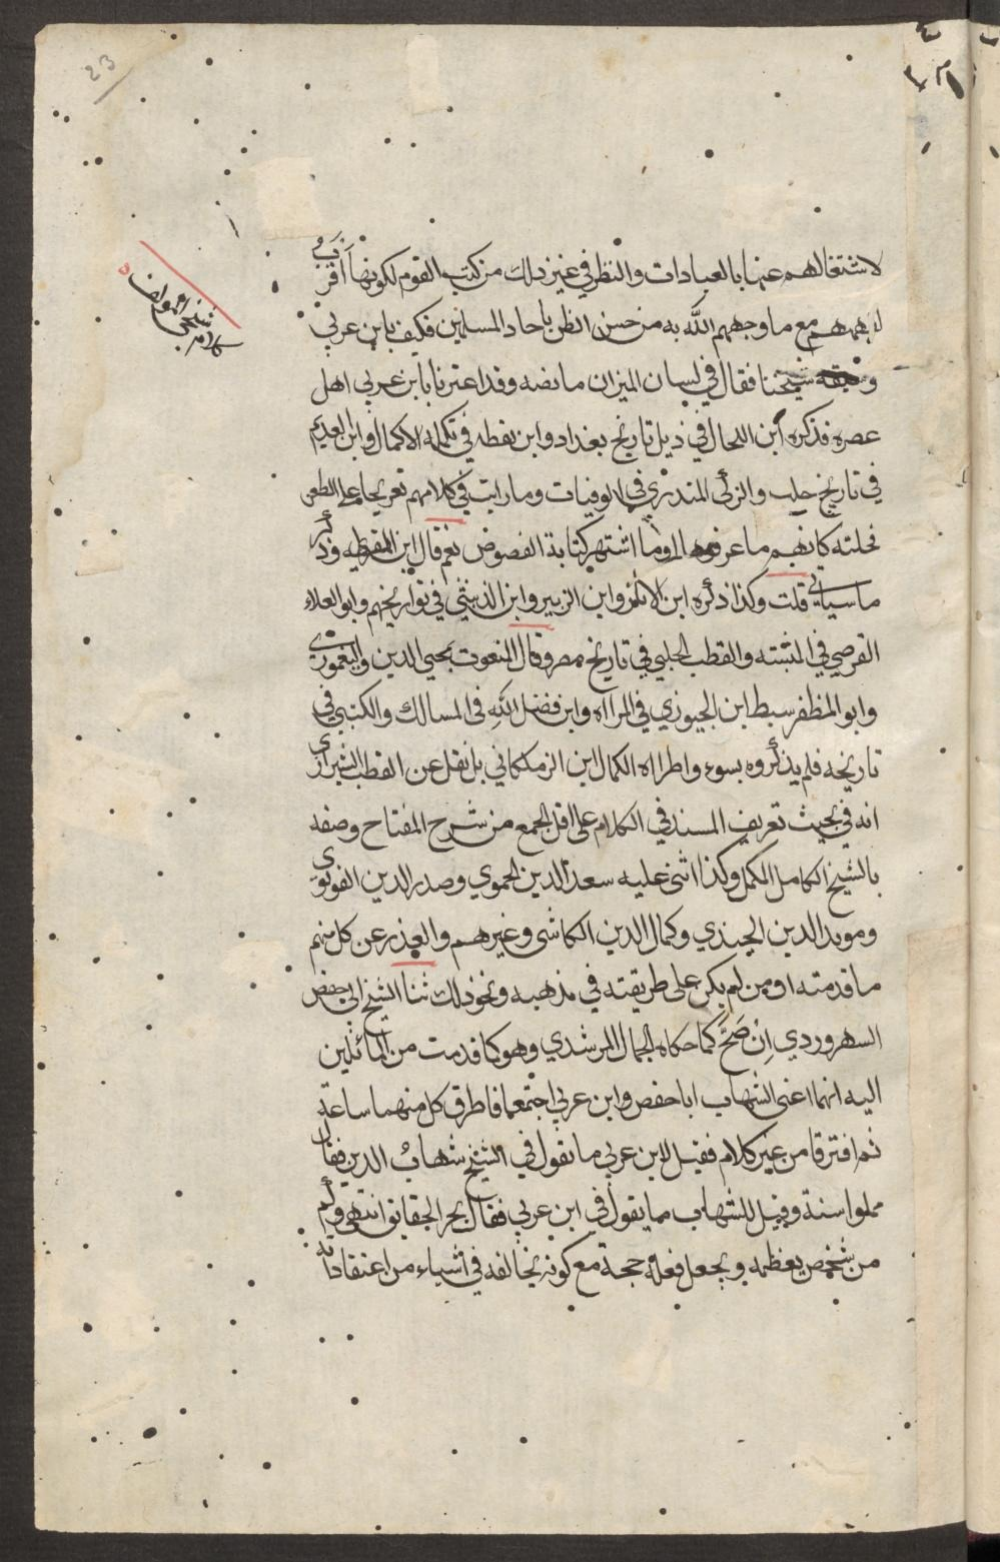 23
لاشتغالهم عنها بالعبادات والنظر في غير ذلك من كتب القوم لكونها اقرب
لديهم مع ما وجههم الله به من حسن الظن باحاد المسلمين فكيف بابن عربي
شيخنا فقال في لسان الميزان ما نصه وقد اعتر نا بابن عربي اهل
عصره فذكره ابن النجار في ذيل تاريخ بغداد وابن نقطه في تكملة الاكمال وابن العديم
في تاريخ حلب والزكي المنذري في الوفيات وما رايت في كلامهم تعريجا على الطعن
نحلته كانهم ما عرفوها او ما اشتهر كتابة الفصوص نعم قال ابن نقطه وذكر
ما سياتي قلت وكذا ذكره ابن الابار وابن الزبير وابن الدبيثي في تواريخهم وابو العلاء
الفرضي في المشتبه والقطب الحلبي في تاريخ مصر وقال المنعوت بمحيي الدين واليغموري
وابو المظفر سبط ابن الجوزي في المرااه وابن فضل الله في المسالك والكتبي في
تاريخه فلم يذكروه بسوء واطراه الكمال ابن الزملكاني بل نقل عن القطب الشيرازي
انه في بحيث تعريف المسند في الكلام على اقل الجمع من شرح المفتاح وصفه
بالشيخ الكامل المكمل وكذا اثنى عليه سعد الدين الحموي وصدر الدين القونوي
ومويد الدين الجندي وكمال الدين الكاشى وغيرهم والعذر عن كل منهم
ما قدمته او ممن لم يكن على طريقته في مذهبه ونحو ذلك ثنا الشيخ ابي حفص
السهروردي اِنْ صَحَّ كما حكاه الجمال المرشدي وهو كما قدمت من المائلين
اليه انهما اعنى الشهاب ابا حفص وابن عربي اجتمعا فاطرق كل منهما ساعة
ثم افترقا من غير كلام فقيل لابن عربي ما تقول في الشيخ شهاب الدين فقال
مملوا سنة وقيل للشهاب ما يقول في ابن عربي فقال بحر الحقايق انتهى وكم
من شخص يعظمه ويجعل فعله حجة مع كونه يخالفه في اشياء من اعتقاداته